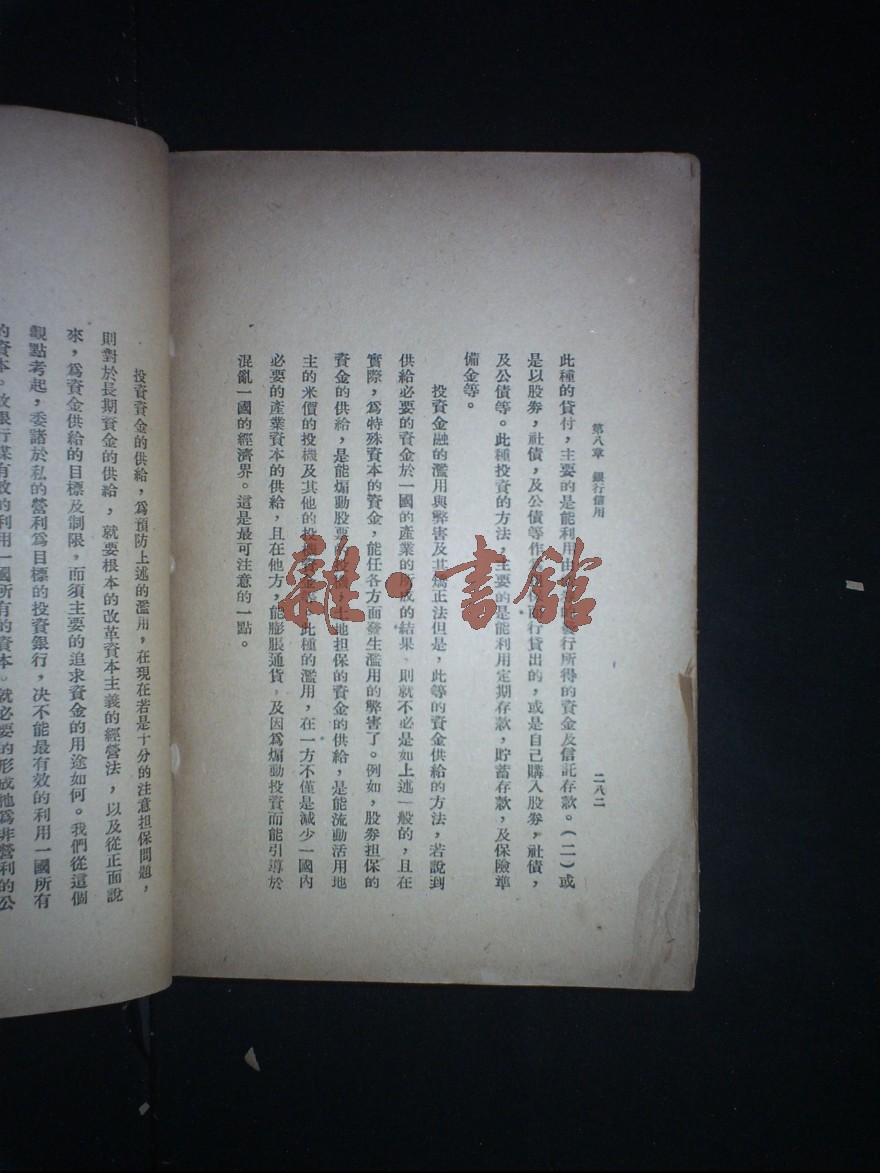 第八章 銀行信用 二八二
此種的貸付，主要的是能利用由 所得的資金及信託存款。（二）或
是以股券，社債，及公債等作 行貸出的，或是自己購入股券，社債，
及公債等。此種投資的方法，主要的是能利用定期存款，貯蓄存款，及保險準
備金等。
投資金融的濫用與弊害及其矯正法但是，此等的資金供給的方法，若說到
供給必要的資金於一國的產業的形成的結果，則就不必是如上述一般的，且在
實際，為特殊資本的資金，能任各方面發生濫用的弊害了。例如，股券担保的
資金的供給，是能煽動股票的投機，土地担保的資金的供給，是能流動活用地
主的米價的投機及其他的投機 此種的濫用，在一方不僅是減少一國內
必要的產業資本的供給，且在他方，能膨脹通貨，及因為煽動投資而能引導於
混亂一國的經濟界。這是最可注意的一點。
雜·書館
投資資金的供給，為預防上述的濫用，在現在若是十分的注意担保問題，
則對於長期資金的供給，就要根本的改革資本主義的經營法，以及從正面說
來，為資金供給的目標及制限，而須主要的追求資金的用途如何。我們從這個
觀點考起，委諸於私的營利為目標的投資銀行，決不能最有效的利用一國所有
的資本。故銀行 有效的利用一國所有的資本。就必要的形成 為非營利的公